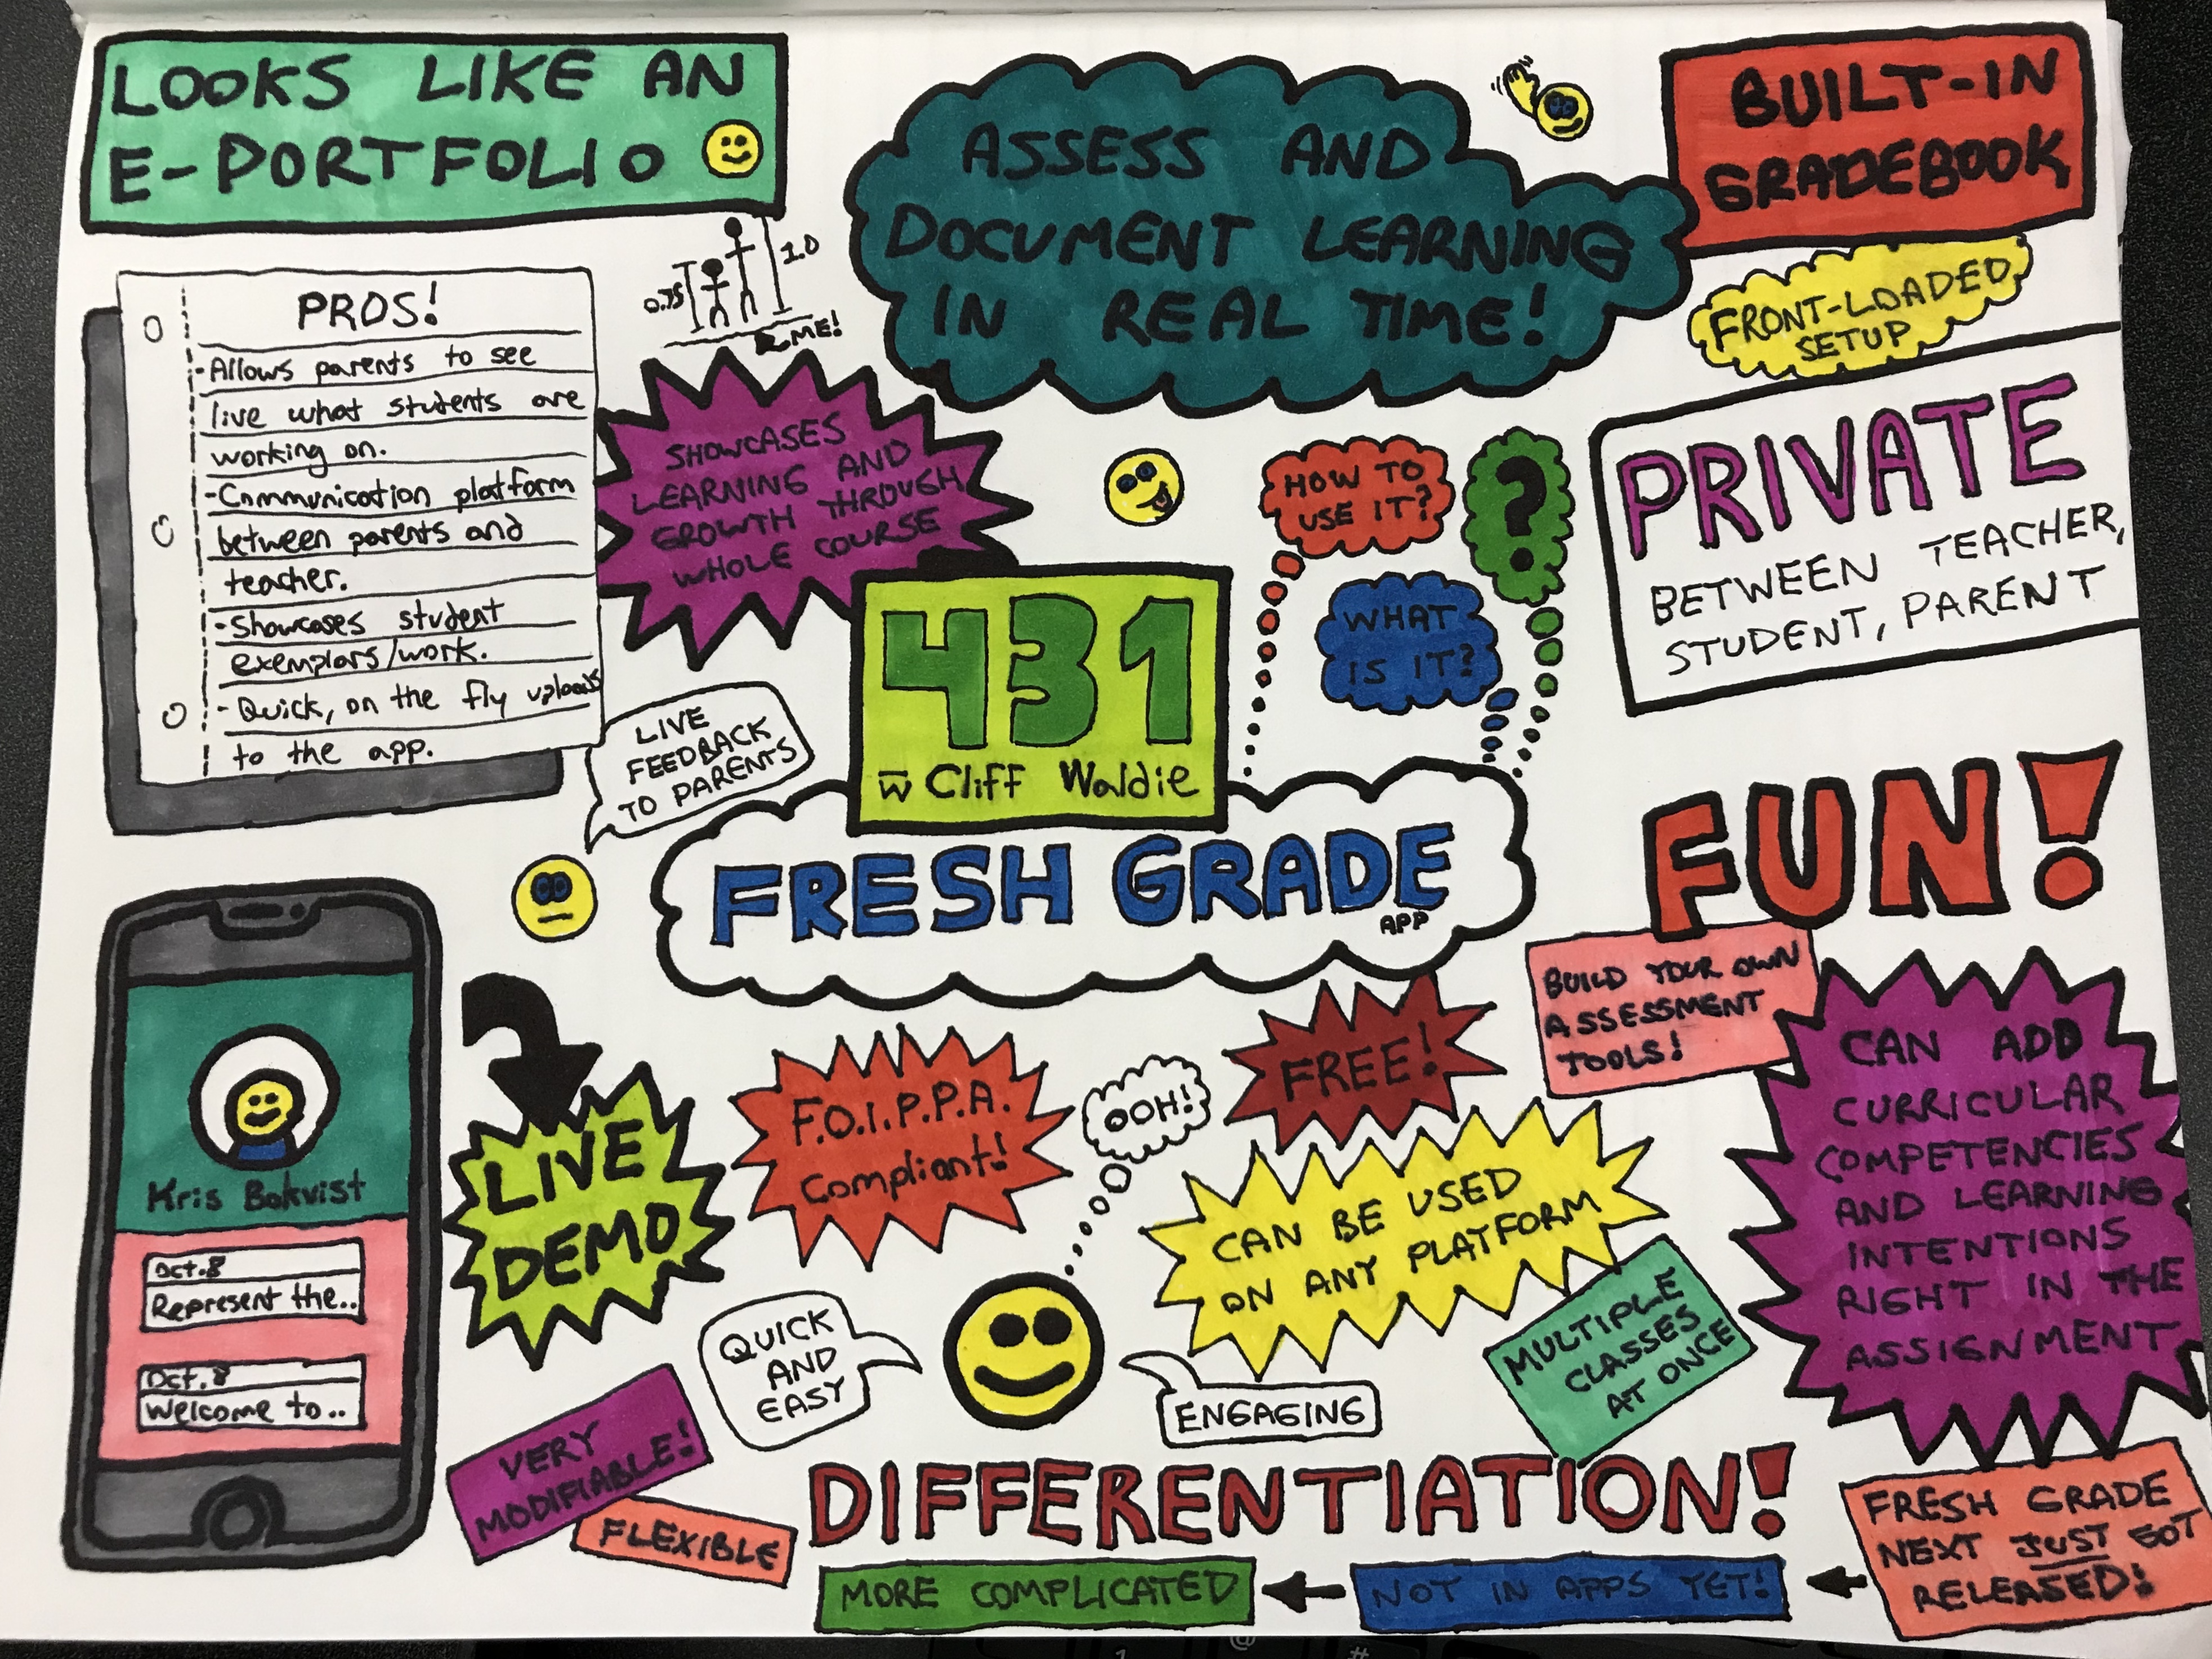 LOOKS LIKE AN
E-PORTFOLIO
ASSESS AND
DOCUMENT LEARNING
IN REAL TIME!
BUILT-IN
GRADEBOOK
FRONT-LOADED
SETUP
1.0
0.75
ME!
PROS!
-Allows parents to see
live what students are
working on.
-Communication platform
between parents and
teacher.
-Showcases student
exemplars/work.
-Quick, on the fly uploads
to the app.
SHOWCASES
LEARNING AND
GROWTH THROUGH
WHOLE COURSE
HOW TO
USE IT?
?
WHAT
IS IT?
PRIVATE
BETWEEN TEACHER,
STUDENT, PARENT
LIVE
FEEDBACK
TO PARENTS
431
w Cliff Waldie
FRESH GRADE
APP
FUN!
BUILD YOUR OWN
ASSESSMENT
TOOLS!
CAN ADD
CURRICULAR
COMPETENCIES
AND LEARNING
INTENTIONS
RIGHT IN THE
ASSIGNMENT
Kris Bokvist
Oct.8
Represent the..
Oct.8
Welcome to..
LIVE
DEMO
F.O.I.P.P.A.
Compliant!
OOH!
FREE!
CAN BE USED
ON ANY PLATFORM
MULTIPLE
CLASSES
AT ONCE
QUICK
AND
EASY
ENGAGING
VERY
MODIFIABLE!
FLEXIBLE
DIFFERENTIATION!
MORE COMPLICATED
NOT IN APPS YET!
FRESH GRADE
NEXT JUST GOT
RELEASED!
@
1
#